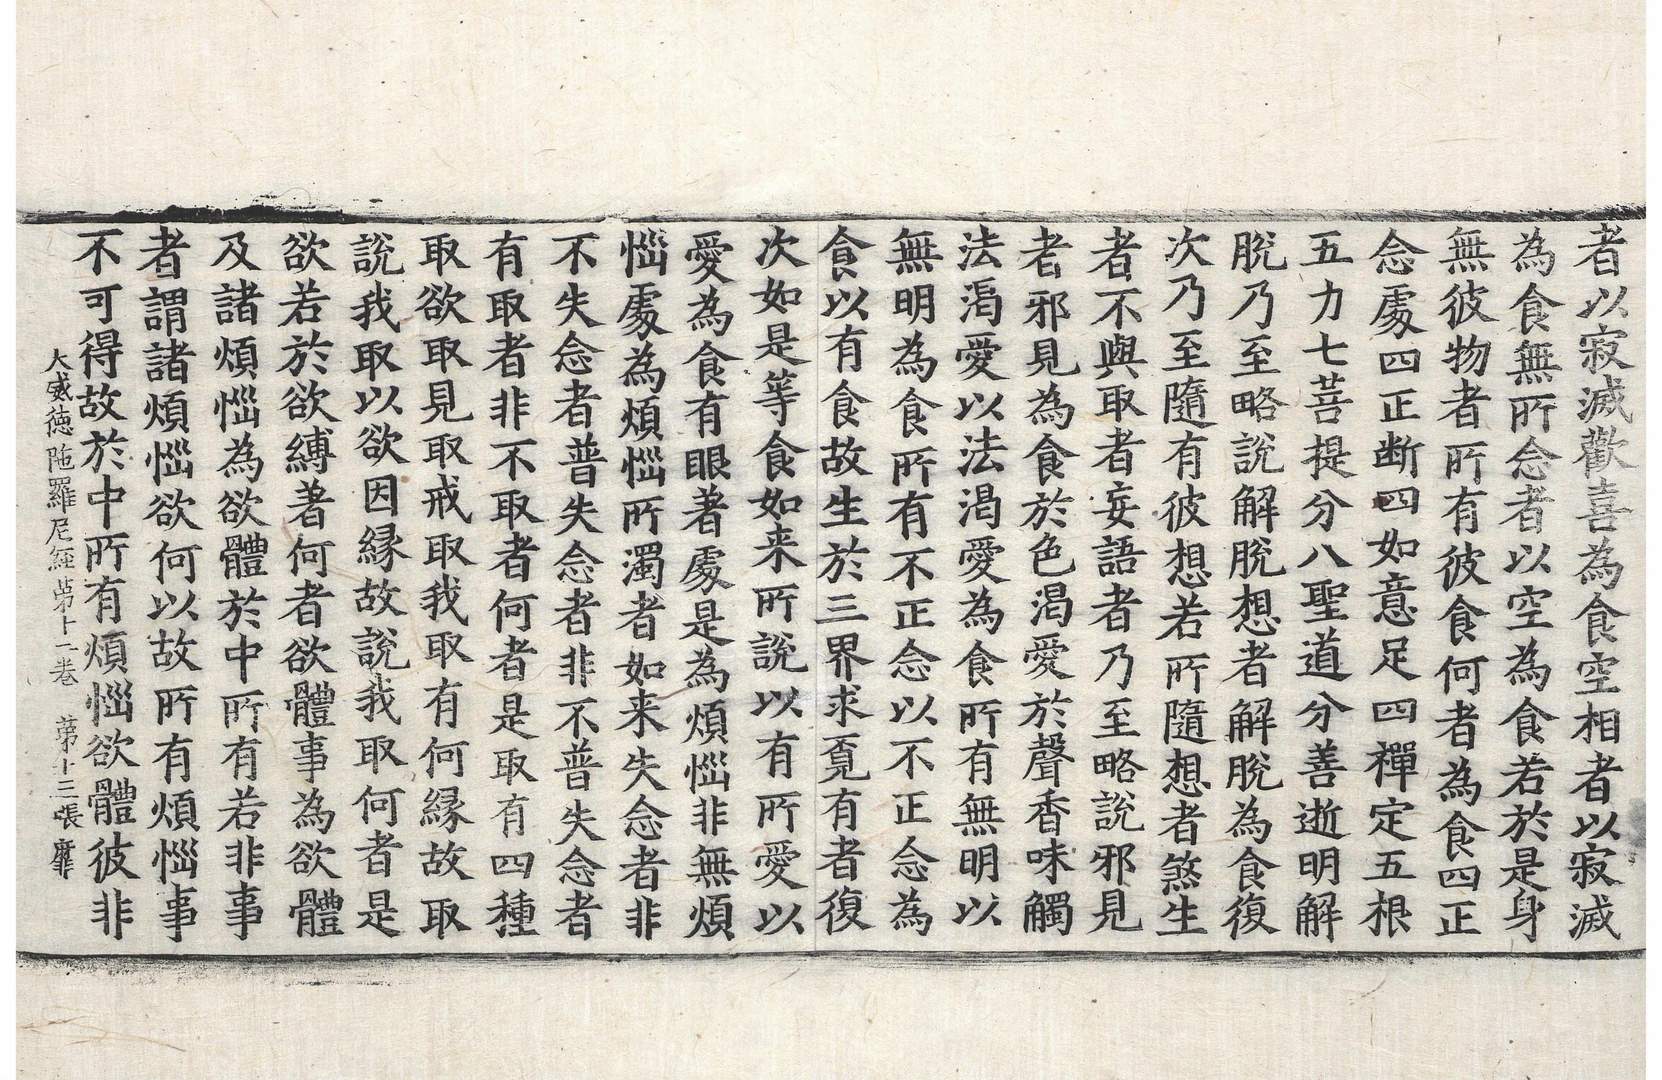 者以寂滅歡喜為食空相者以寂滅
為食無所念者以空為食若於是身
無彼物者所有彼食何者為食四正
念處四正断四如意足四禪定五根
五力七菩提分八聖道分善逝明解
脫乃至略說解脫想者解脫為食復
次乃至隨有彼想若所隨想者煞生
者不與取者妄語者乃至略說邪見
者邪見為食於色渴愛於聲香味觸
法渴愛以法渴愛為食所有無明以
無明為食所有不正念以不正念為
食以有食故生於三界求覔有者復
次如是等食如来所說以有所愛以
愛為食有眼著處是為煩惱非無煩
惱處為煩惱所濁者如来失念者非
不失念者普失念者非不普失念者
有取者非不取者何者是取有四種
取欲取見取戒取我取有何縁故取
說我取以欲因縁故說我取何者是
欲若於欲縛著何者欲體事為欲體
及諸煩惱為欲體於中所有若非事
者謂諸煩惱欲何以故所有煩惱事
不可得故於中所有煩惱欲體彼非
大威徳陁羅尼經第十二卷 第十三張 靡